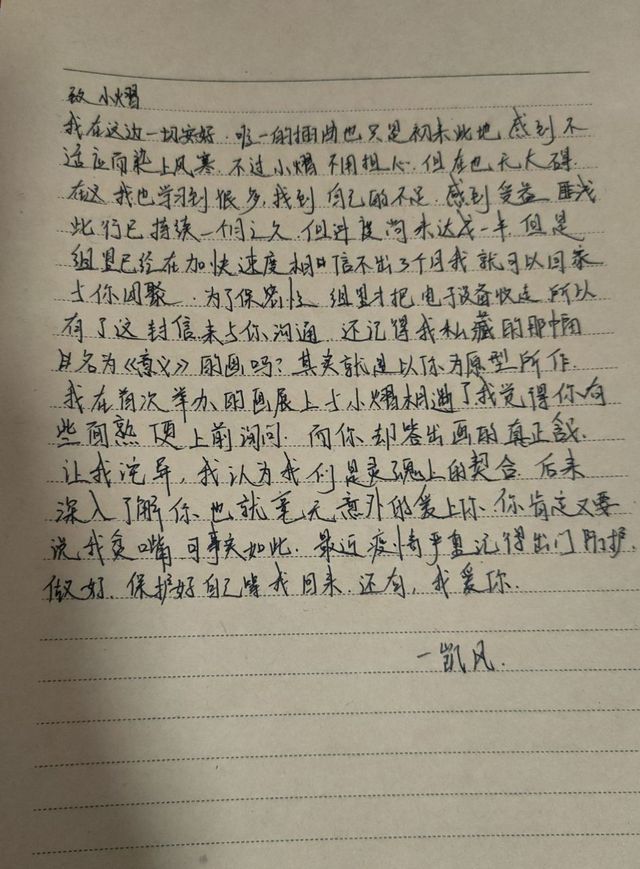 致小熠
我在这边一切安好.唯一的插曲也只是初来此地.感到不
适应而染上风寒.不过小熠不用担心.但在也无大碍.
在这我也学习到很多,我到自己的不足.感到受益匪浅
此行已持续一个月之久.但进度尚未达成一半.但是
组里已经在加快速度相信不出3个月我就可以回家
与你团聚.为了保密性.组里才把电子设备收走.所以
有了这封信来与你沟通.还记得我私藏的那幅
且名为《意义》的画吗?其实就是以你为原型所作.
我在首次举办的画展上与小熠相遇了我觉得你有
些面熟便上前询问.而你却答出画的真正含义.
让我诧异,我认为我们是灵魂上的契合.后来
深入了解你.也就毫无意外的爱上你.你肯定又要
说我贫嘴.可事实如此.最近疫情严重记得出门防护.
做好.保护好自己等我回来.还有,我爱你.
—凯风.